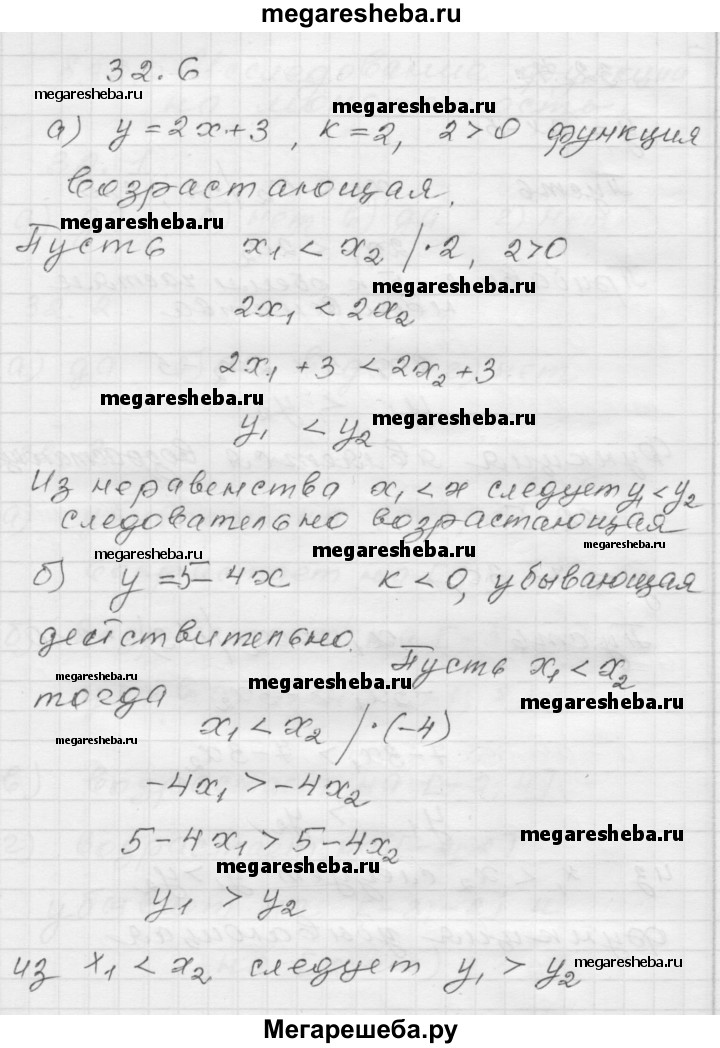 megaresheba.ru
32.6
megaresheba.ru megaresheba.ru
а) y = 2x + 3 , к = 2, 2 > 0 функция
возрастающая.
megaresheba.ru
Пусть x₁ < x₂ | · 2, 2 > 0
megaresheba.ru
2x₁ < 2x₂
2x₁ + 3 < 2x₂ + 3
megaresheba.ru megaresheba.ru
y₁ < y₂
Из неравенства x₁ < x следует y₁ < y₂
следовательно возрастающая
megaresheba.ru megaresheba.ru megaresheba.ru
б) y = 5 - 4x к < 0, убывающая
действительно.
Пусть x₁ < x₂
megaresheba.ru megaresheba.ru megaresheba.ru
тогда
x₁ < x₂ | · (-4)
megaresheba.ru
-4x₁ > -4x₂
5 - 4x₁ > 5 - 4x₂
megaresheba.ru
megaresheba.ru
y₁ > y₂
из x₁ < x₂ следует y₁ > y₂
megaresheba.ru
Мегарешеба.ру